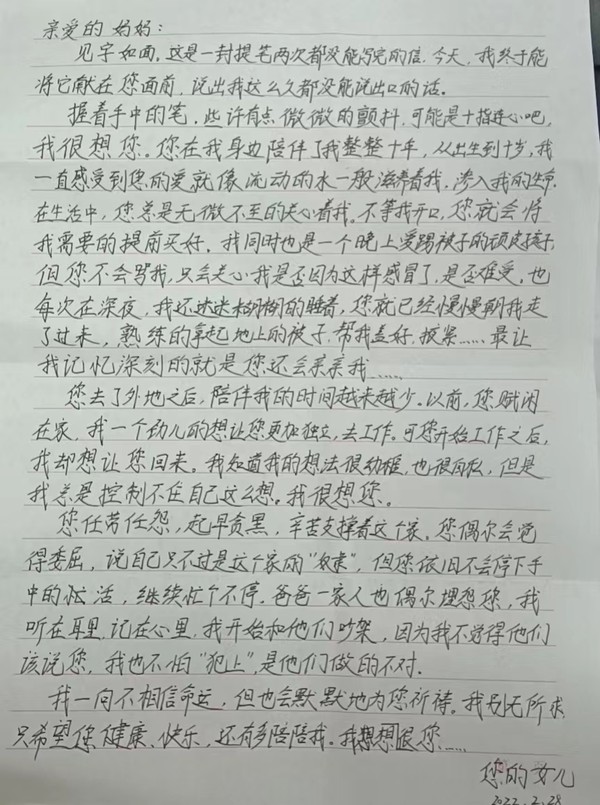 亲爱的妈妈：
见字如面。这是一封提笔两次都没能写完的信。今天，我终于能
将它献在您面前，说出我这么久都没能说出口的话。
握着手中的笔，些许有点微微的颤抖，可能是十指连心吧，
我很想您。您在我身边陪伴了我整整十年，从出生到十岁，我
一直感受到您的爱就像流动的水一般滋养着我，渗入我的生命。
在生活中，您总是无微不至的关心着我。不等我开口，您就会将
我需要的提前买好。我同时也是一个晚上爱踢被子的顽皮孩子，
但您不会骂我，只会关心我是否因为这样感冒了，是否难受。也
每次在深夜，我还迷迷糊糊的睡着，您就已经慢慢朝我走
了过来，熟练的拿起地上的被子，帮我盖好，掖紧……最让
我记忆深刻的就是您还会亲亲我……
您去了外地之后，陪伴我的时间越来越少。以前，您赋闲
在家，我一个幼儿的想让您更加独立，去工作。可您开始工作之后，
我却想让您回来。我知道我的想法很幼稚，也很自私，但是
我总是控制不住自己这么想。我很想您。
您任劳任怨，起早贪黑，辛苦支撑着这个家。您偶尔会觉
得委屈，说自己只不过是这个家的“奴隶”，但您依旧不会停下手
中的忙活，继续忙个不停。爸爸一家人也偶尔埋怨您，我
听在耳里，记在心里，我开始和他们吵架，因为我不觉得他们
该说您，我也不怕“犯上”，是他们做的不对。
我一向不相信命运，但也会默默地为您祈祷。我别无所求
只希望您健康、快乐，还有多陪陪我。我想想很您……
您的女儿
2022.2.28